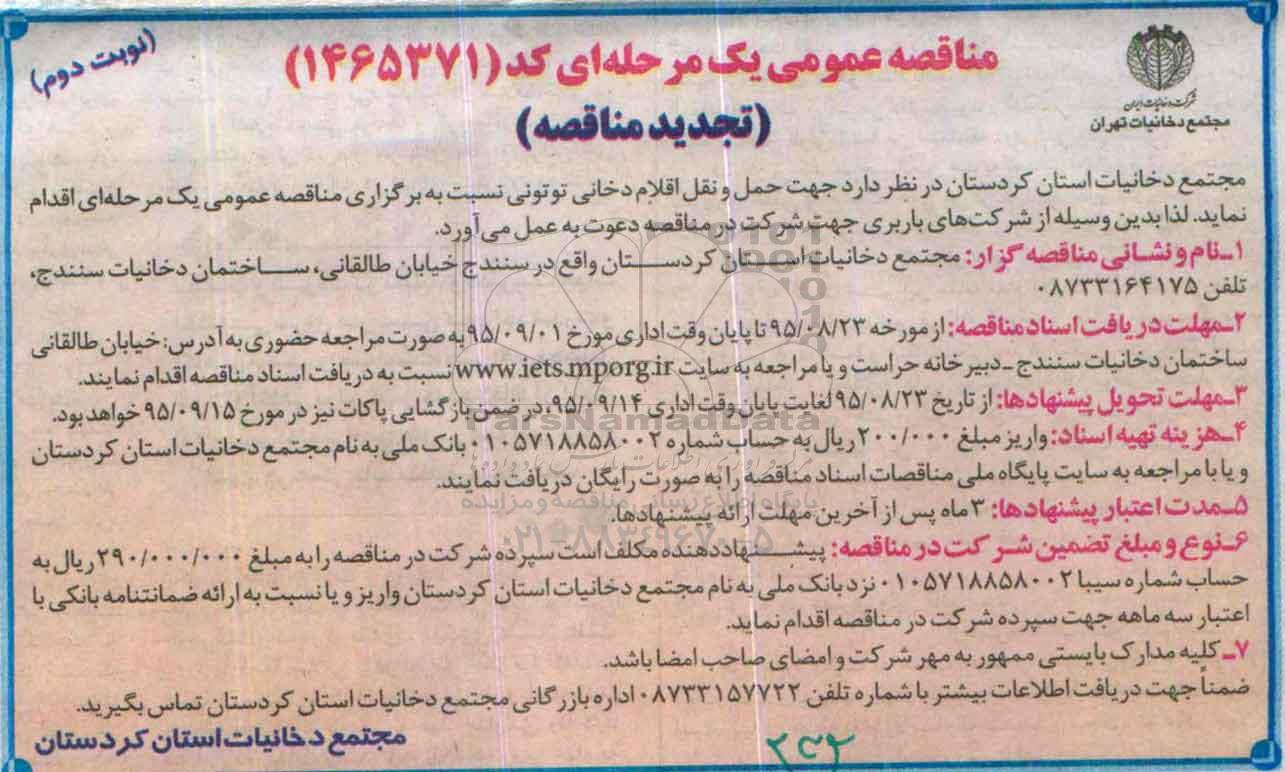 (نوبت دوم)
مناقصه عمومی یک مرحله‌ای کد (۱۴۶۵۳۷۱)
(تجدید مناقصه)
شرکت دخانیات ایران
مجتمع دخانیات تهران
مجتمع دخانیات استان کردستان در نظر دارد جهت حمل و نقل اقلام دخانی توتونی نسبت به برگزاری مناقصه عمومی یک مرحله‌ای اقدام
نماید. لذا بدین وسیله از شرکت‌های باربری جهت شرکت در مناقصه دعوت به عمل می‌آورد.
۱ـ نام و نشانی مناقصه گزار: مجتمع دخانیات استان کردستان واقع در سنندج خیابان طالقانی، ساختمان دخانیات سنندج،
تلفن ۰۸۷۳۳۱۶۴۱۷۵
۲ـ مهلت دریافت اسناد مناقصه: از مورخه ۹۵/۰۸/۲۳ تا پایان وقت اداری مورخ ۹۵/۰۹/۰۱ به صورت مراجعه حضوری به آدرس: خیابان طالقانی
ساختمان دخانیات سنندج ـ دبیرخانه حراست و یا مراجعه به سایت www.iets.mporg.ir نسبت به دریافت اسناد مناقصه اقدام نمایند.
۳ـ مهلت تحویل پیشنهادها: از تاریخ ۹۵/۰۸/۲۳ لغایت پایان وقت اداری ۹۵/۰۹/۱۴، در ضمن بازگشایی پاکات نیز در مورخ ۹۵/۰۹/۱۵ خواهد بود.
۴ـ هزینه تهیه اسناد: واریز مبلغ ۲۰۰/۰۰۰ ریال به حساب شماره ۰۱۰۵۷۱۸۸۵۸۰۰۲ بانک ملی به نام مجتمع دخانیات استان کردستان
و یا با مراجعه به سایت پایگاه ملی مناقصات اسناد مناقصه را به صورت رایگان دریافت نمایند.
۵ـ مدت اعتبار پیشنهادها: ۳ ماه پس از آخرین مهلت ارائه پیشنهادها.
۶ـ نوع و مبلغ تضمین شرکت در مناقصه: پیشنهاددهنده مکلف است سپرده شرکت در مناقصه را به مبلغ ۲۹۰/۰۰۰/۰۰۰ ریال به
حساب شماره سیبا ۰۱۰۵۷۱۸۸۵۸۰۰۲ نزد بانک ملی به نام مجتمع دخانیات استان کردستان واریز و یا نسبت به ارائه ضمانتنامه بانکی با
اعتبار سه ماهه جهت سپرده شرکت در مناقصه اقدام نماید.
۷ـ کلیه مدارک بایستی ممهور به مهر شرکت و امضای صاحب امضا باشد.
ضمناً جهت دریافت اطلاعات بیشتر با شماره تلفن ۰۸۷۳۳۱۵۷۷۲۲ اداره بازرگانی مجتمع دخانیات استان کردستان تماس بگیرید.
مجتمع دخانیات استان کردستان
ParsNamadData
پایگاه اطلاع رسانی مناقصه و مزایده